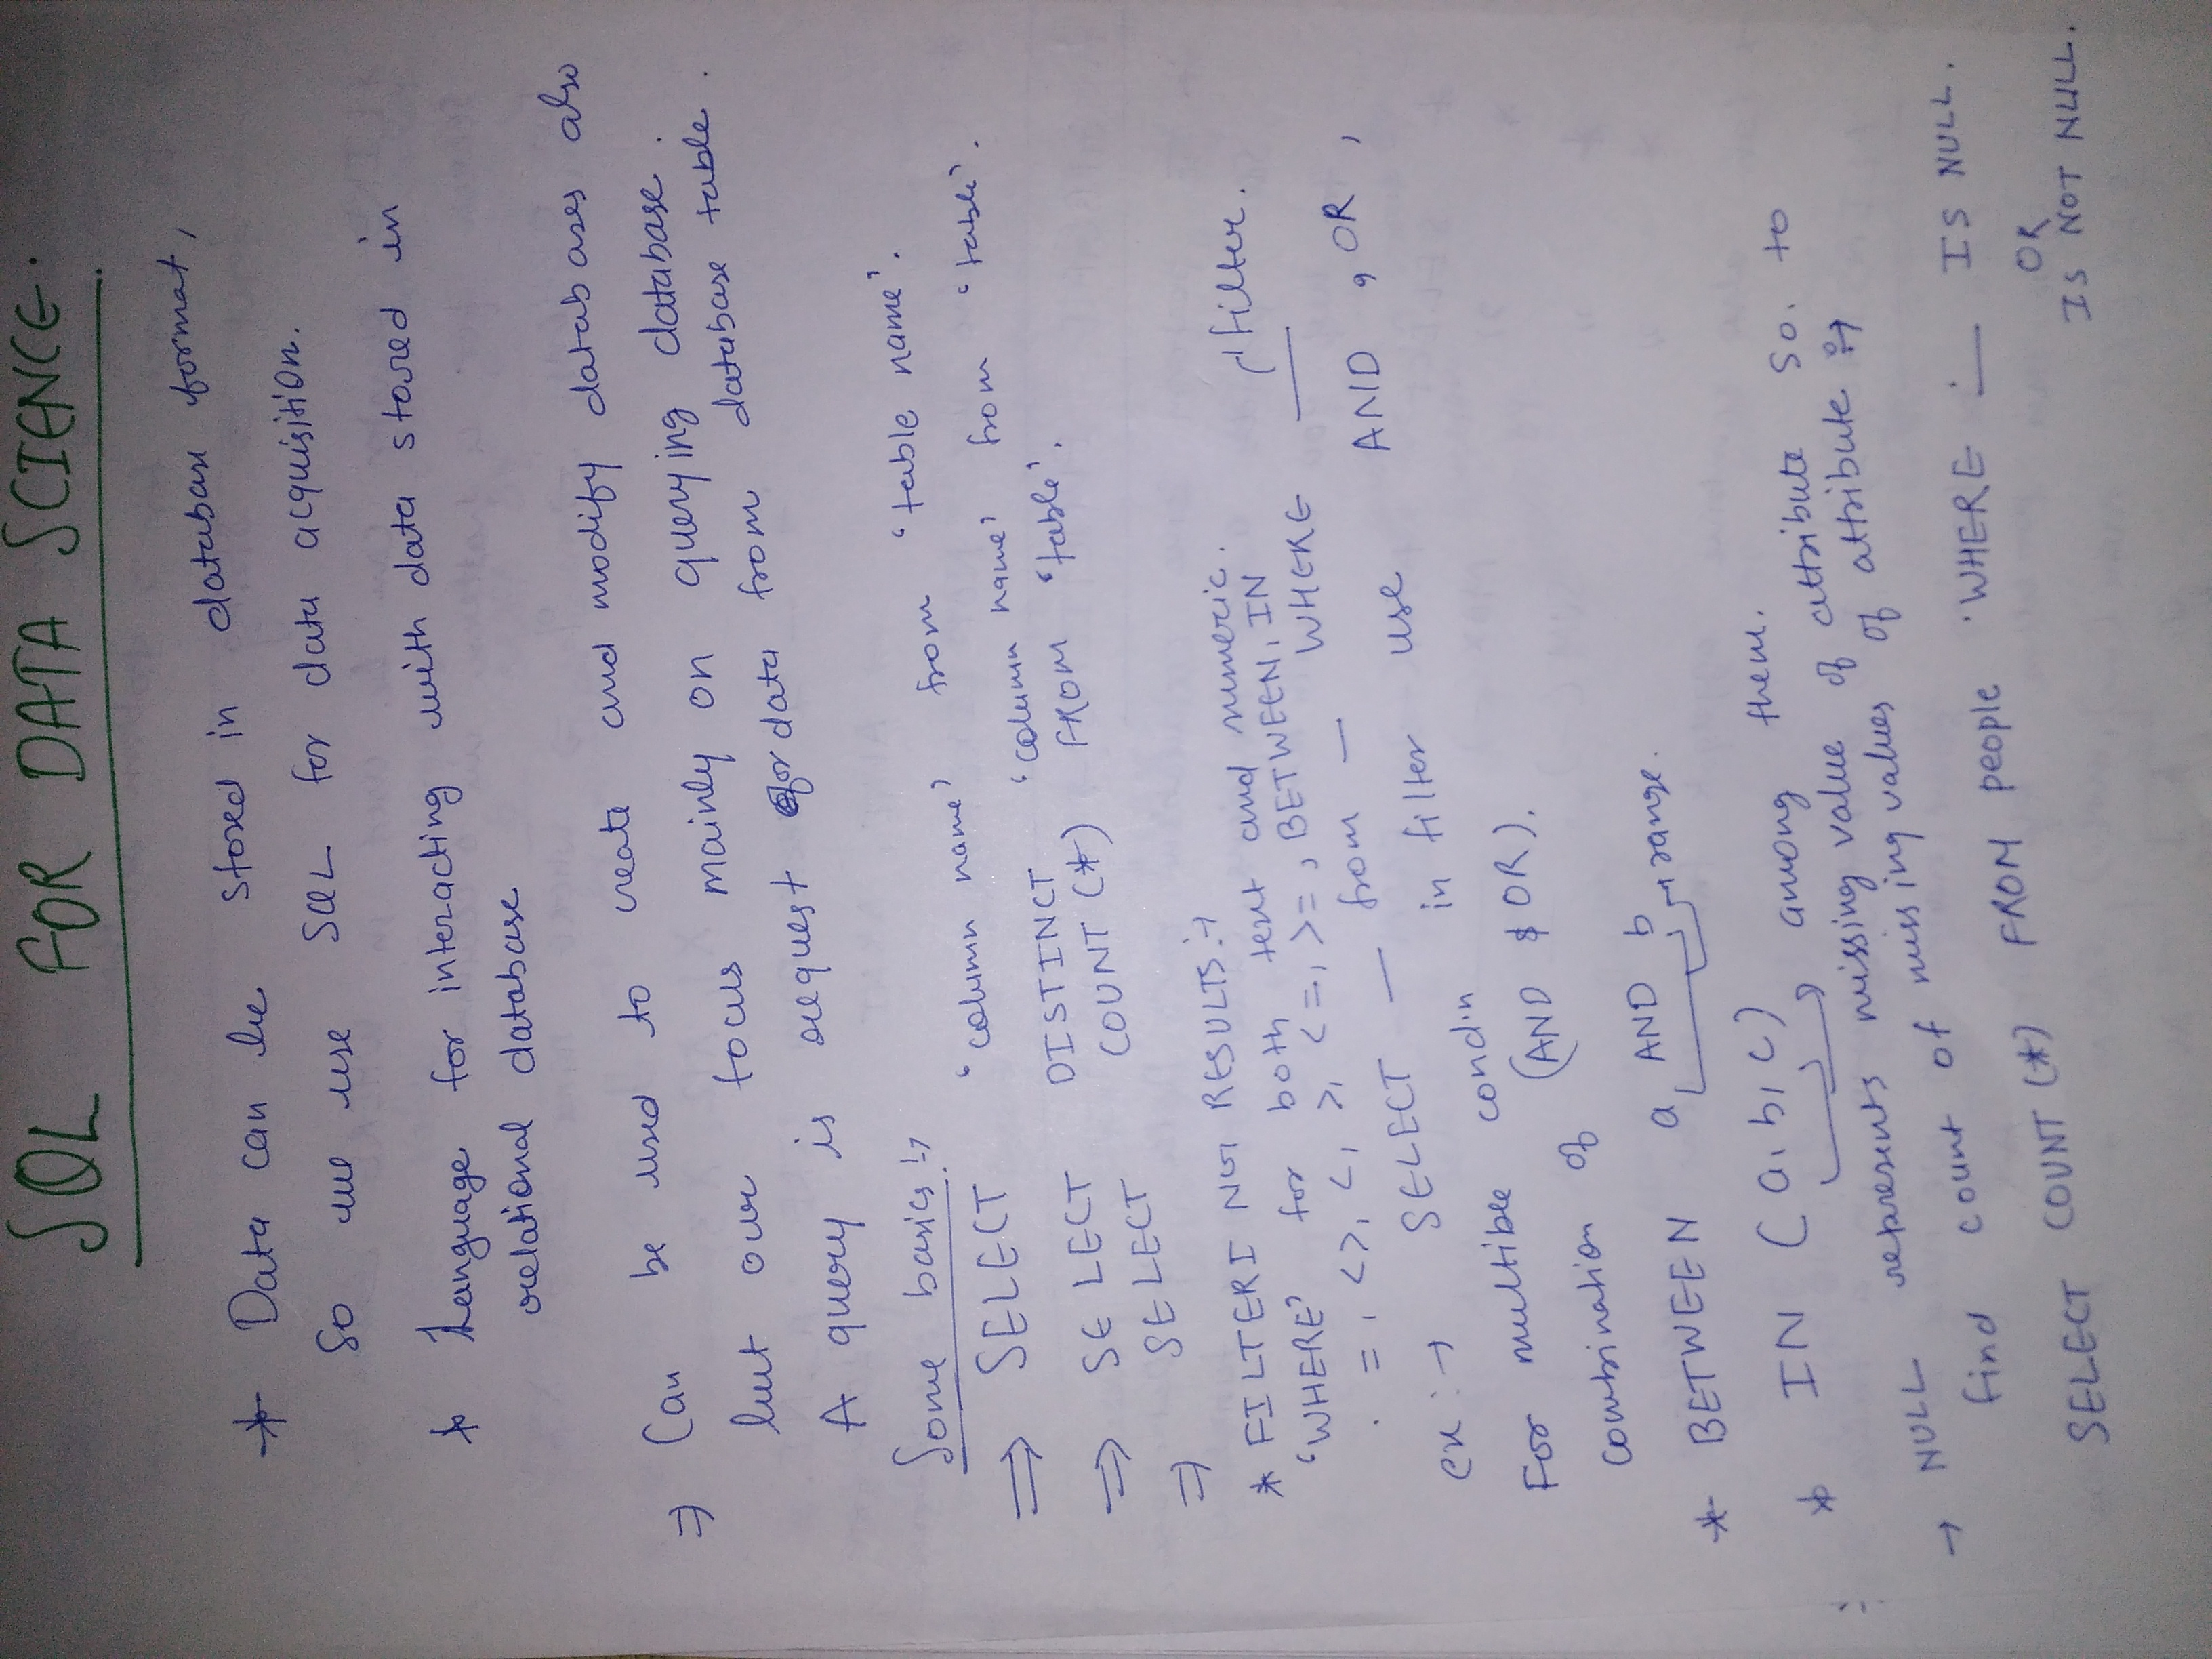 SQL FOR DATA SCIENCE.
* Data can be stored in database format,
So we use SQL for data acquisition.
* Language for interacting with data stored in
relational database
⇒ Can be used to create and modify databases also
but our focus mainly on querying database.
A query is request for data from database table.
Some basics :→
⇒ SELECT 'column name' from 'table name'.
⇒ SELECT DISTINCT 'column name' from 'table'.
⇒ SELECT COUNT (*) FROM 'table'.
* FILTERING RESULTS :→
'WHERE' for both text and numeric.
. = , <>, <, >, <=, >=, BETWEEN, IN
ex :→ SELECT — from — WHERE — filter.
For multible condin in filter use AND, OR,
combination of (AND $ OR).
* BETWEEN a AND b → range.
* IN (a, b, c) among them.
→ NULL represents missing value of attribute so. to
find count of missing values of attribute :→
SELECT COUNT (*) FROM people 'WHERE — IS NULL.
OR
IS NOT NULL.